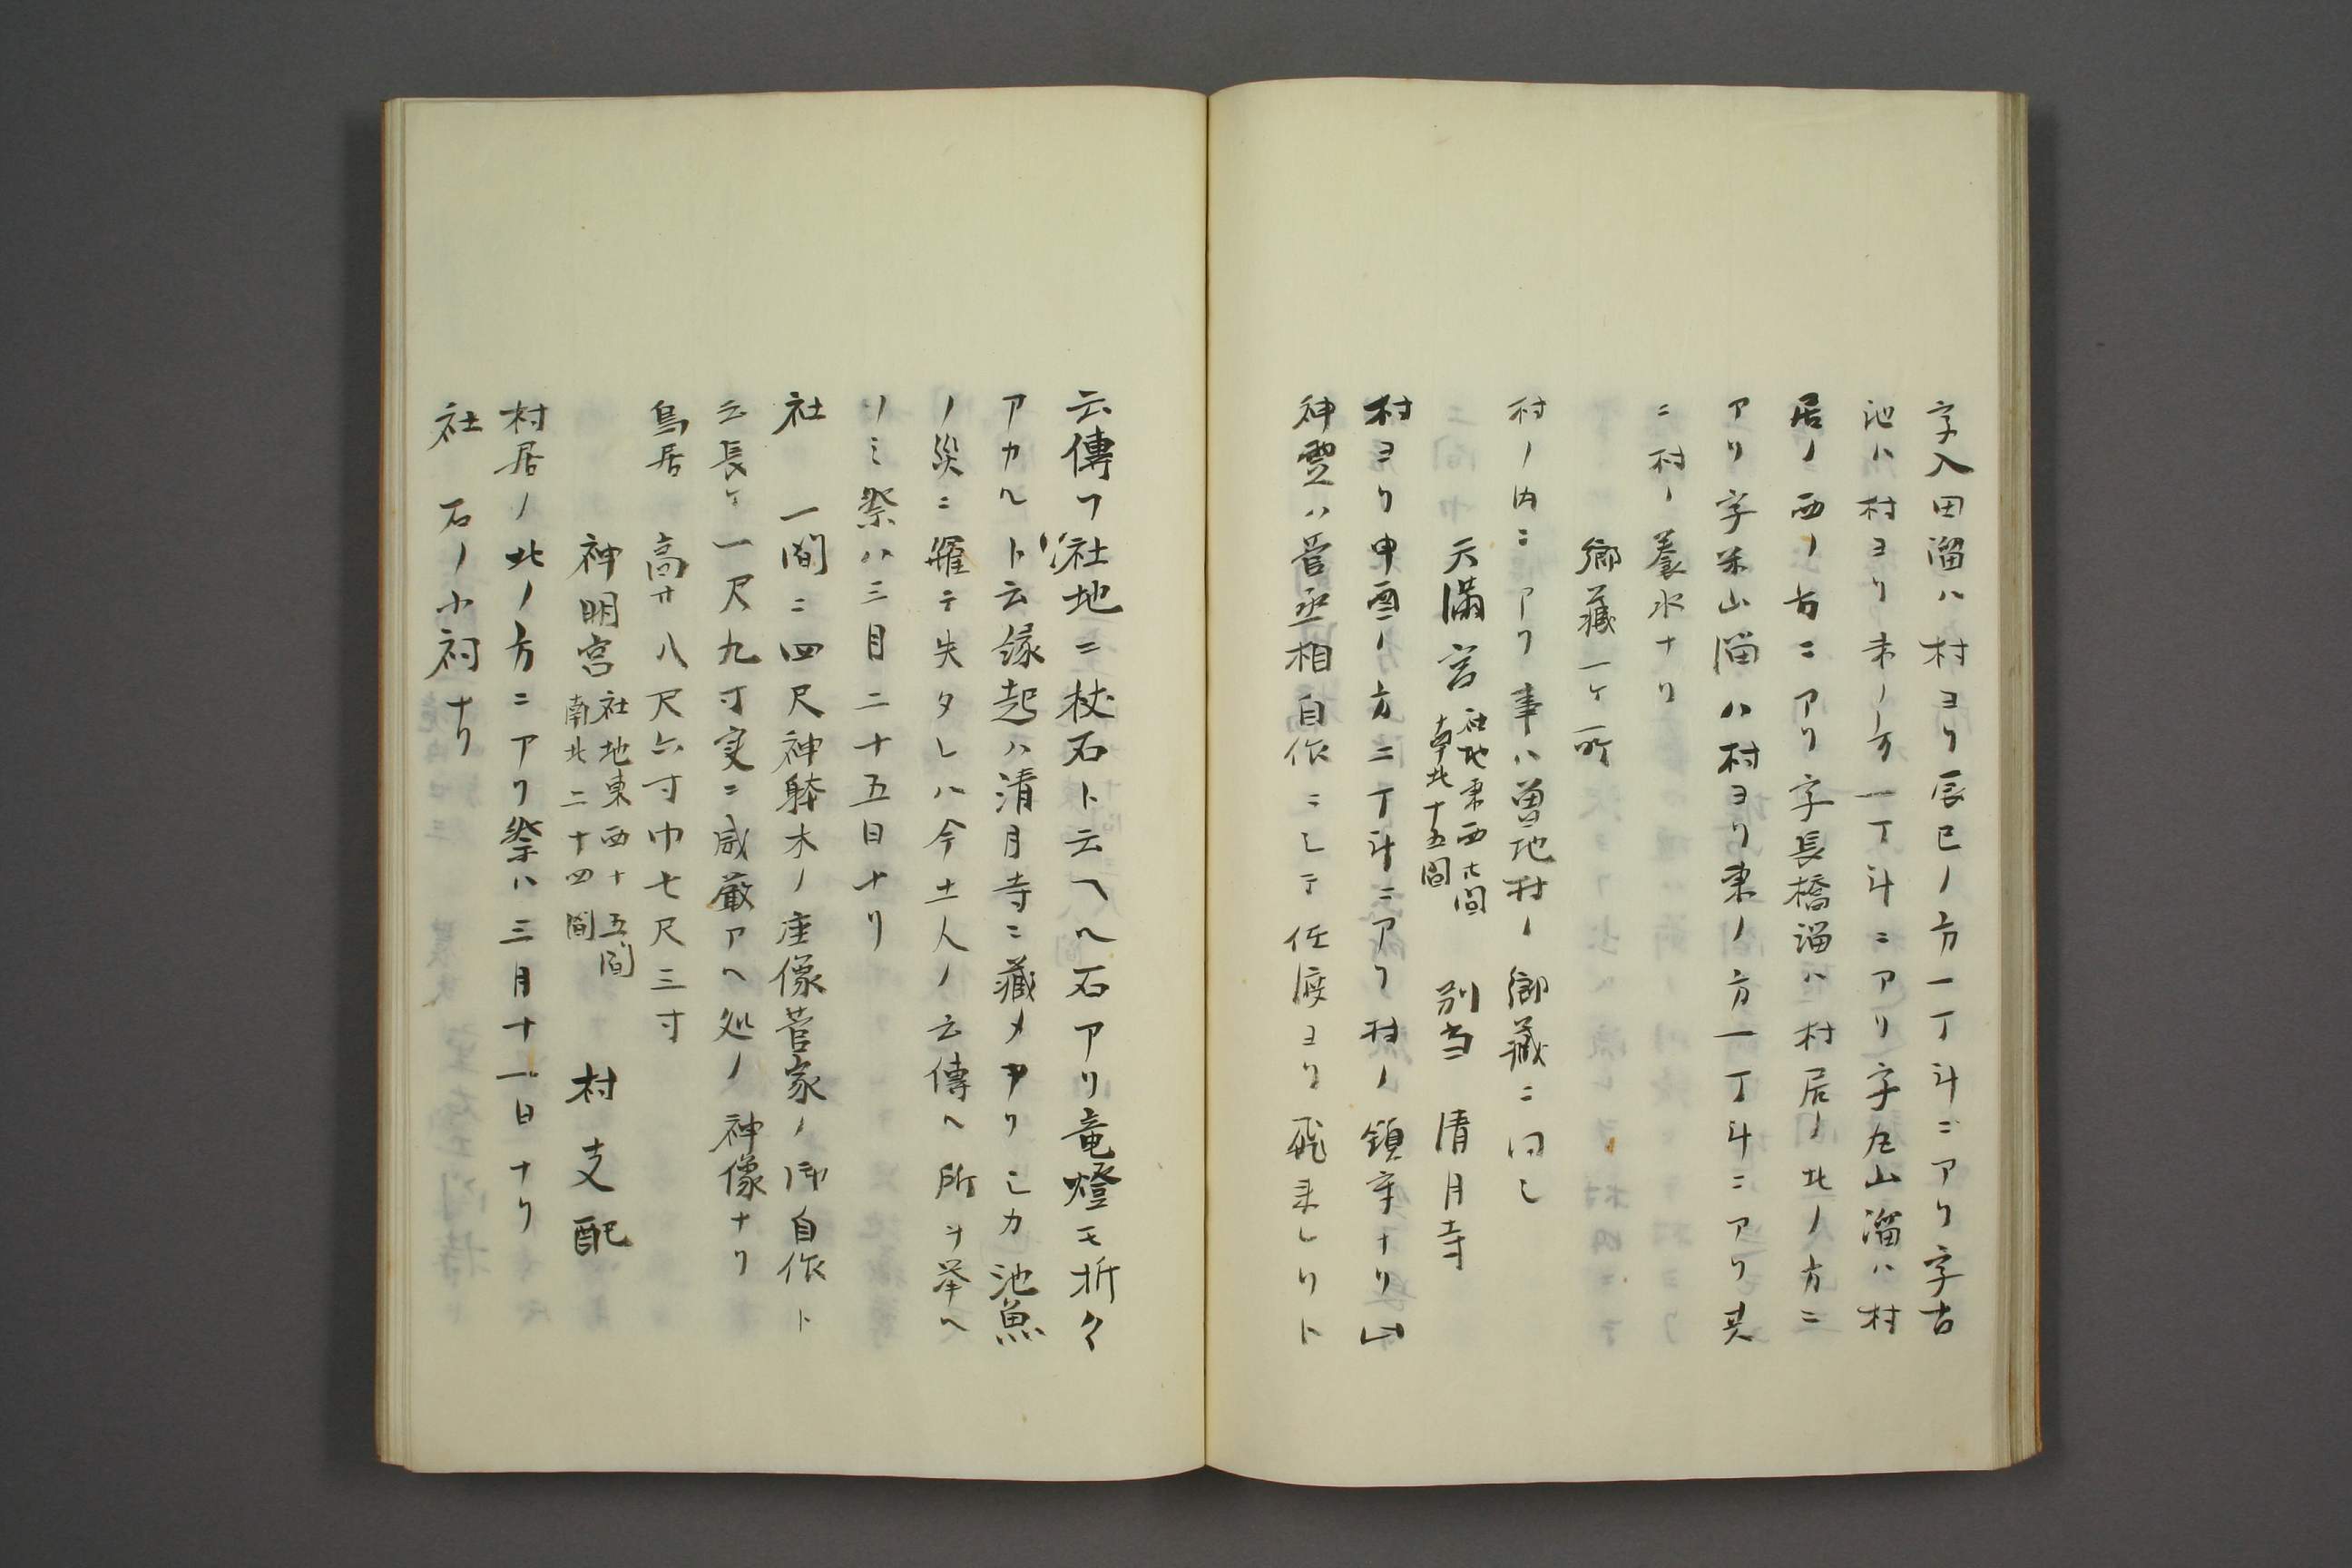 字入田溜ハ村ヨリ辰巳ノ方一丁斗ニアリ字古
池ハ村ヨリ未ノ方一丁斗ニアリ字丸山溜ハ村
居ノ西ノ方ニアリ字長橋溜ハ村居ノ北ノ方ニ
アリ字米山溜ハ村ヨリ東ノ方一丁斗ニアリ其
ニ村ノ養水ナリ
郷藏一ケ所
村ノ内ニアリ事ハ曽地村ノ郷藏ニ同し
天満宮 社地東西七間 南北十五間 別当 清月寺
村ヨリ申酉ノ方二丁斗ニアリ村ノ鎮守ナリ此
神霊ハ菅丞相自作ニして佐渡ヨリ飛来レリト
云傳フ社地ニ杖石ト云ヘル石アリ竜燈モ折々
アカルト云縁起ハ清月寺ニ藏メアリシカ池魚
ノ災ニ罹テ失タレハ今土人ノ云傳ヘ所ヲ挙ヘ
ノミ祭ハ三月二十五日ナリ
社 一間ニ四尺神躰木ノ座像菅家ノ御自作ト
云長ケ一尺九寸実ニ威厳アヘ処ノ神像ナリ
鳥居 高サ八尺六寸巾七尺三寸
神明宮 社地東西十五間 南北二十四間 村支配
村居ノ北ノ方ニアリ祭ハ三月十一日ナリ
社 石ノ小祠ナリ